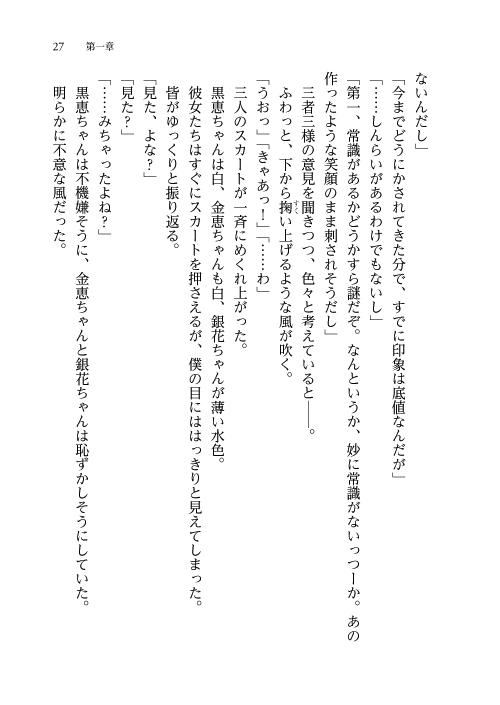 27　第一章
ないんだし」
「今までどうにかされてきた分で、すでに印象は底値なんだが」
「……しんらいがあるわけでもないし」
「第一、常識があるかどうかすら謎だぞ。なんというか、妙に常識がないっつーか。あの
作ったような笑顔のまま刺されそうだし」
三者三様の意見を聞きつつ、色々と考えていると――。
ふわっと、下から掬い上げるような風が吹く。
「うおっ」「きゃあっ！」「……わ」
三人のスカートが一斉にめくれ上がった。
黒恵ちゃんは白、金恵ちゃんも白、銀花ちゃんが薄い水色。
彼女たちはすぐにスカートを押さえるが、僕の目にははっきりと見えてしまった。
皆がゆっくりと振り返る。
「見た、よな？」
「見た？」
「……みちゃったよね？」
黒恵ちゃんは不機嫌そうに、金恵ちゃんと銀花ちゃんは恥ずかしそうにしていた。
明らかに不意な風だった。